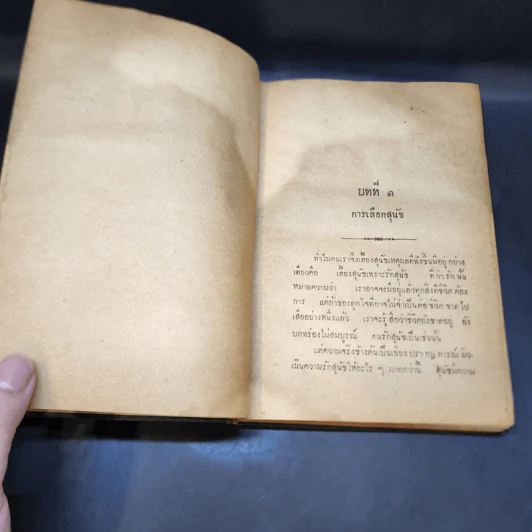 บทที่ ๑
การเลือกสุนัข
ทำไมคนเราจึงเลี้ยงสุนัขเหตุผลที่พึงชี้นั้นอยู่ อย่าง
เดียวคือ เลี้ยงสุนัขเพราะรักสุนัข ที่ว่า รัก นั้น
หมายความว่า เราอาจจะมีอยู่แล้วทุกสิ่งที่ชีวิต ต้อง
การ แต่ถ้าของถูกใจที่อาจไม่จำเป็นต่อ ชีวิต ขาด ไป
เสียอย่างหนึ่งแล้ว เราจะรู้ สึกว่าชีวิตยังขาดอยู่ ยัง
บกพร่องไม่สมบูรณ์ คนรักสุนัขเป็นเช่นนั้น
แต่ความจริงข้างต้นเป็นเพียง ปรา กฏ การณ์
เมินความรักสุนัขให้อะไร ๆ มากกว่านี้ สุนัขมีความ